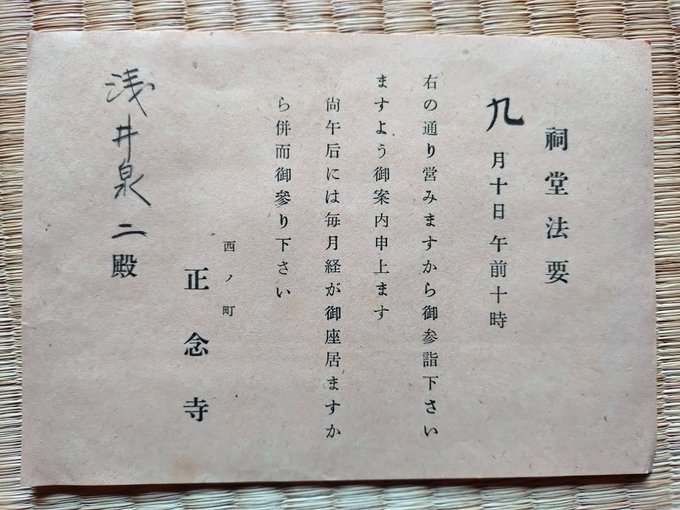 祠堂法要
九月十日午前十時
右の通り営みますから御参詣下さい
ますよう御案内申上ます
尙午后には毎月経が御座居ますか
ら併而御參り下さい
西ノ町
正念寺
浅井泉二殿